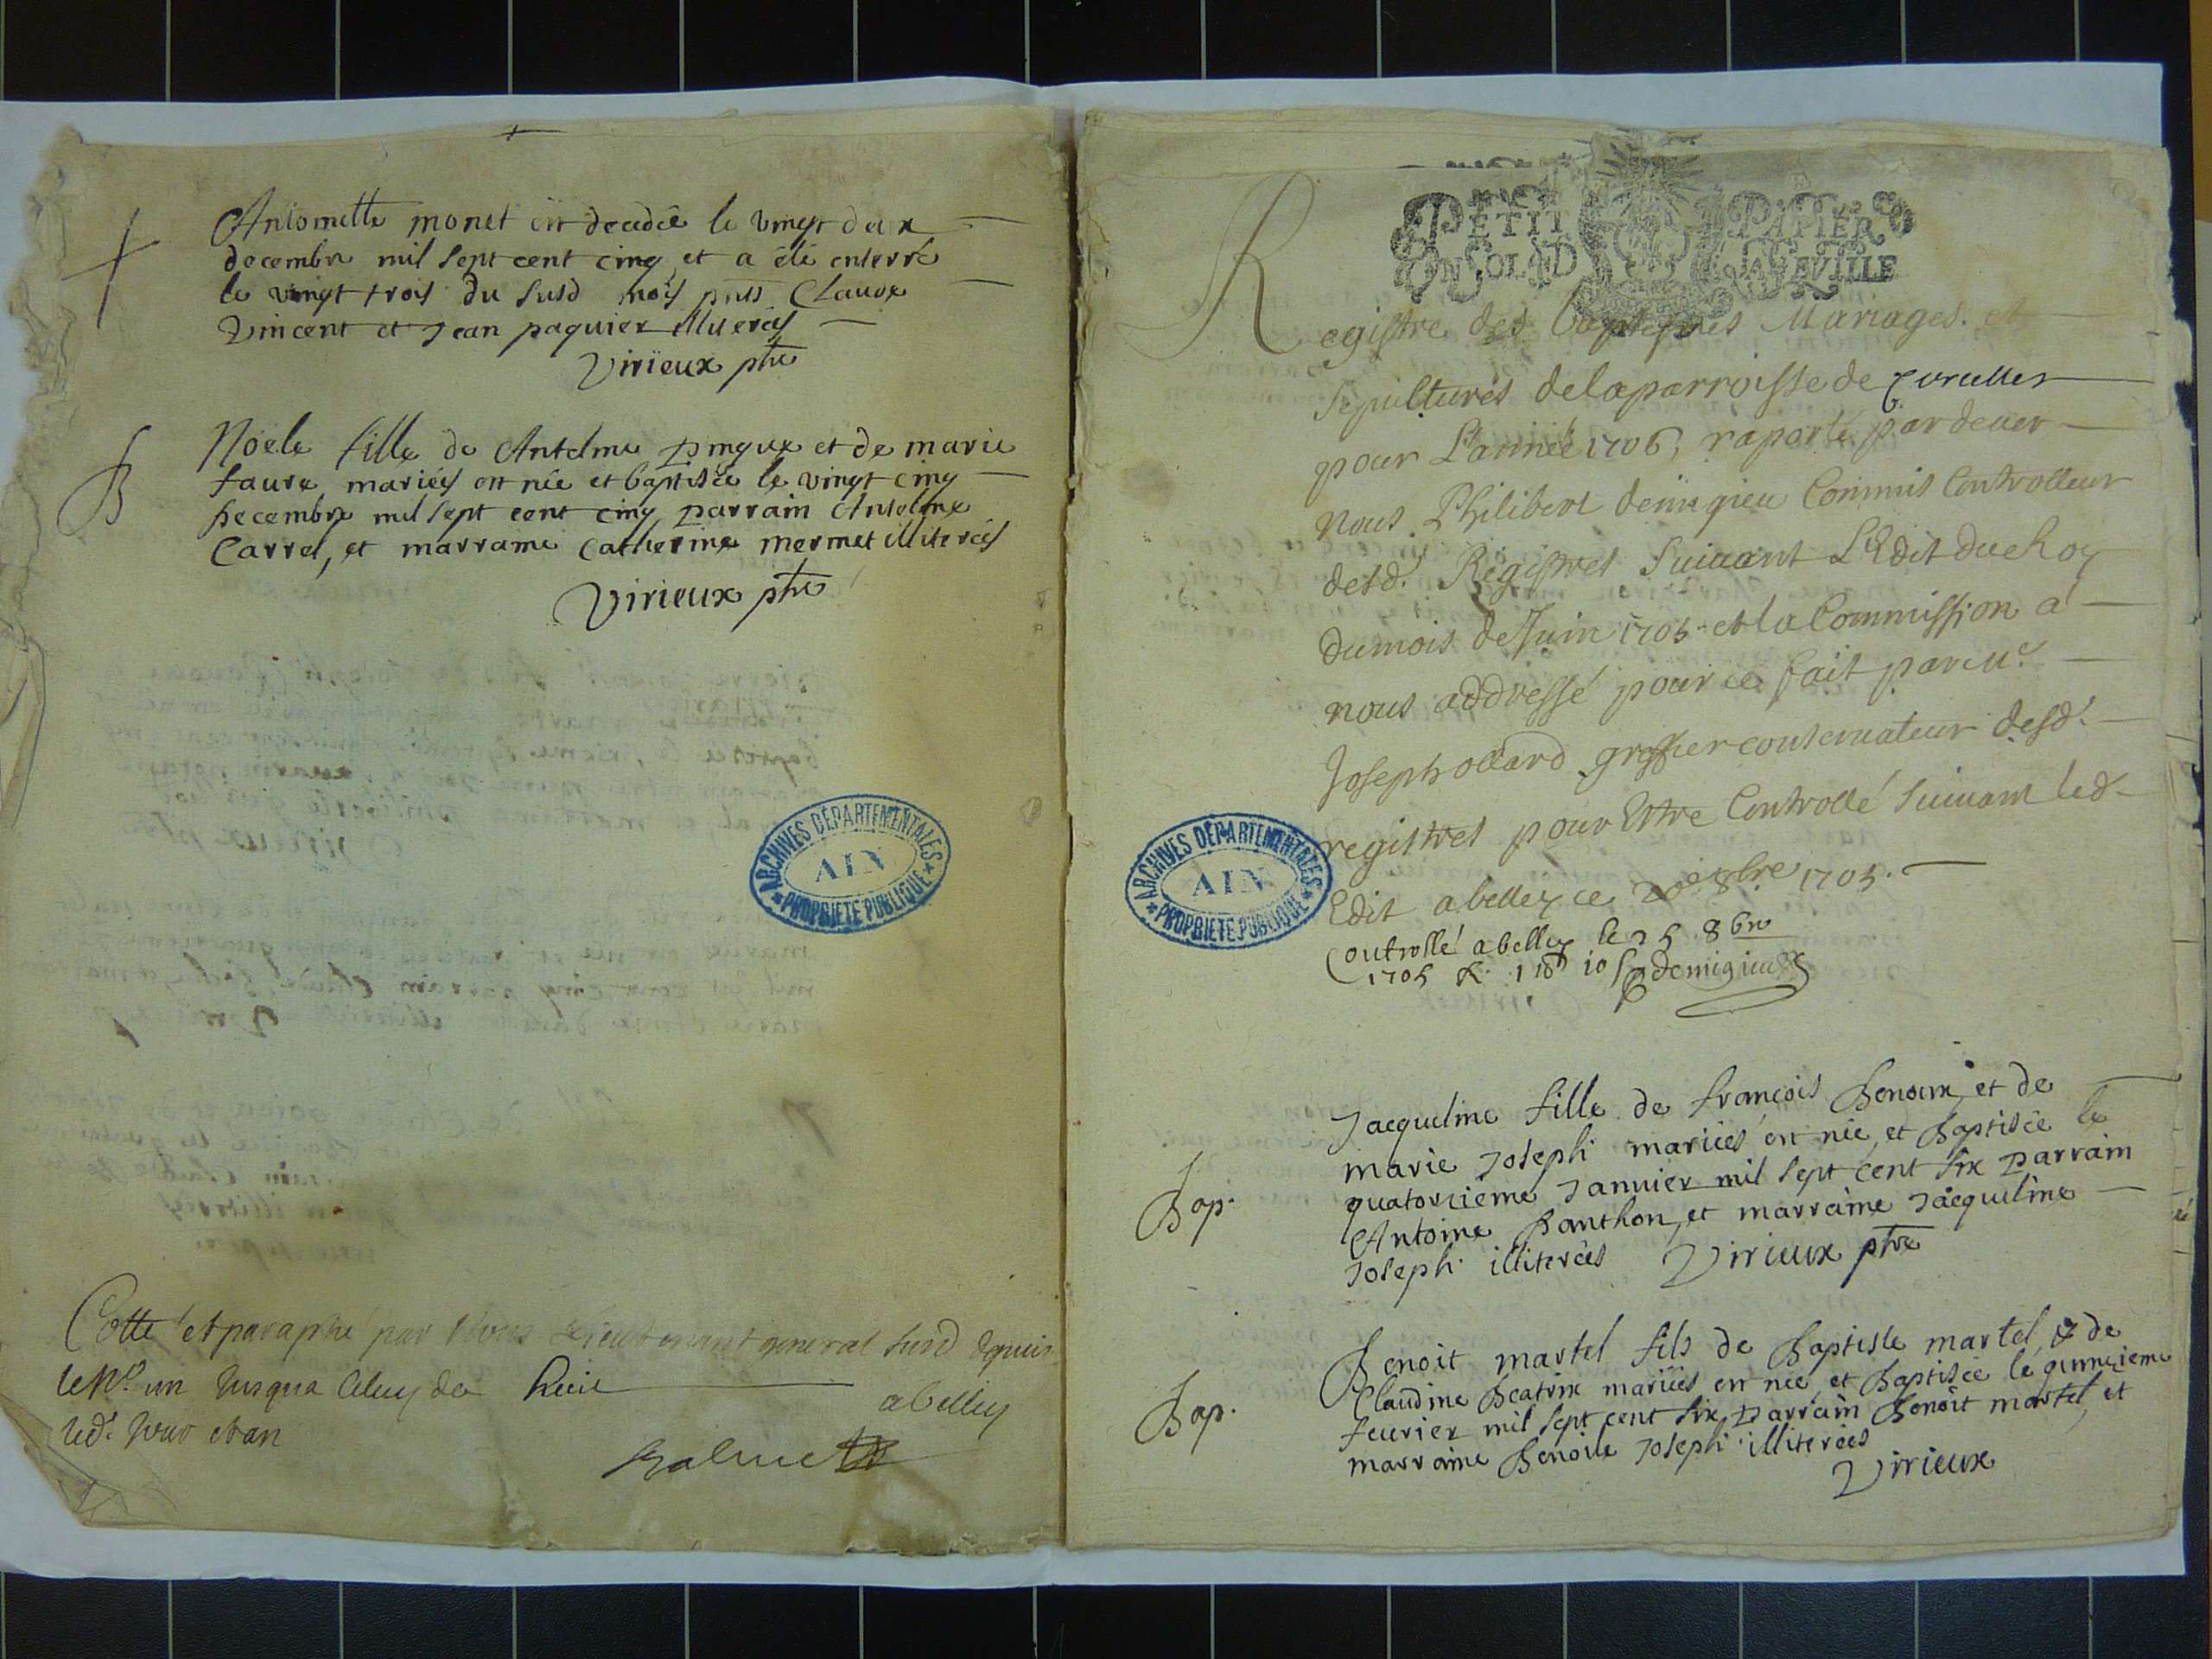 Antoinette monet est decedée le vingt deux
decembre mil sept cent cinq et a été enterré
le vingt trois du susd mois pnts Claude
Vincent et Jean paquier illiterés
Virieux ptre
B
Noële fille de Antelme pingux et de marie
faure mariés est née et baptisée le vingt cinq
decembre mil sept cent cinq parrain Antelme
Carrel, et marraine Catherine mermet illiterés
Virieux ptre
ARCHIVES DÉPARTEMENTALES
AIN
PROPRIÉTÉ PUBLIQUE
Cotté et paraphé par Nous Lieutenant general susd depuis
le No. un jusqua Celuy de huit
abelley
led. jour et an
PETIT PAPIER
UN SOL D LA FEUILLE
Registre des Baptesmes Mariages et
Sepultures de la parroisse de
pour L'année 1706, raporté par dever
nous Philibert demigieu Commis Controlleur
desd. Registres Suivant L'Edit du Roy
du mois de Juin 1705 et la Commission a
nous addressé pour ce fait par Me.
Joseph greffier conservateur desd.
registres pour Estre Controllé suivant led
Edit a belley ce 20e 8bre 1705.
Controllé a belley le 25 8bre
1705 R. 1 10 demigieu
ARCHIVES DÉPARTEMENTALES
AIN
PROPRIÉTÉ PUBLIQUE
Bap.
Jacqueline fille de françois Benoin et de
marie Joseph mariées est née, et Baptisée le
quatorzième Janvier mil sept cent six parrain
Antoine Banthon, et marraine Jacqueline
Joseph illiterées Virieux ptre
Bap.
Benoit martel fils de Baptiste martel & de
Claudine Beatrix mariées est née, et Baptisée le quinzieme
feurier mil sept cent six parrain Benoit martel, et
marraine Benoite Joseph illiterées
Virieux